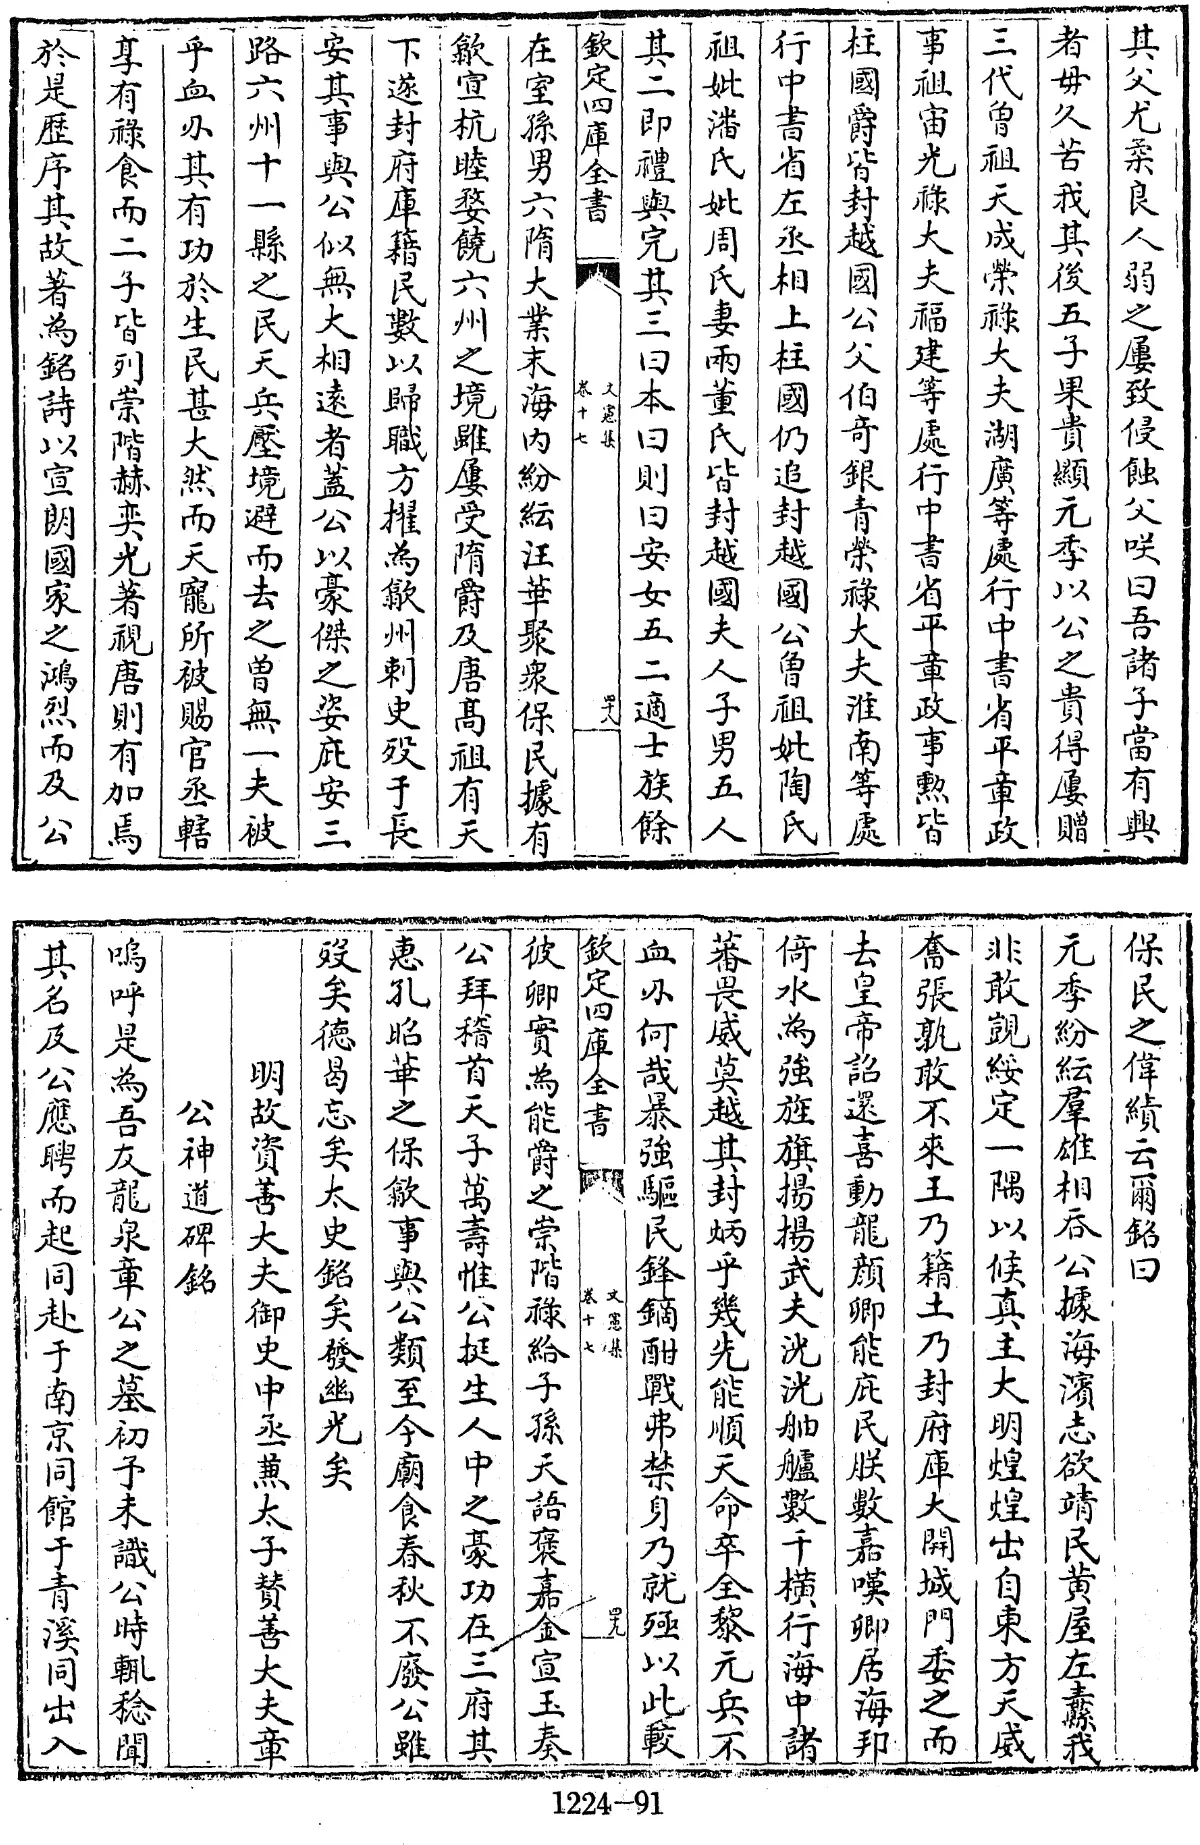 其父尤柔良人弱之屢致侵蝕父咲曰吾諸子當有興
者毋久苦我其後五子果貴顯元季以公之貴得屢贈
三代曾祖天成榮祿大夫湖廣等處行中書省平章政
事祖宙光祿大夫福建等處行中書省平章政事勲皆
柱國爵皆封越國公父伯奇銀青榮祿大夫淮南等處
行中書省左丞相上柱國仍追封越國公曾祖妣陶氏
祖妣潘氏妣周氏妻兩董氏皆封越國夫人子男五人
其二即禮與完其三曰本曰則曰安女五二適士族餘
欽定四庫全書
文憲集
卷十七
四十八
在室孫男六隋大業末海内紛紜汪華聚衆保民據有
歙宣杭睦婺饒六州之境雖屢受隋爵及唐髙祖有天
下遂封府庫籍民數以歸職方擢為歙州刺史殁于長
安其事與公似無大相遠者蓋公以豪傑之姿庇安三
路六州十一縣之民天兵壓境避而去之曽無一夫被
乎血刅其有功於生民甚大然而天寵所被賜官丞轄
享有祿食而二子皆列崇階赫奕光著視唐則有加焉
於是歴序其故著為銘詩以宣朗國家之鴻烈而及公
保民之偉績云爾銘曰
元季紛紜羣雄相吞公據海濱志欲靖民黄屋左纛我
非敢覬綏定一隅以候真主大明煌煌出自東方天威
奮張孰敢不來王乃籍土乃封府庫大開城門委之而
去皇帝詔還喜動龍顔卿能庇民朕數嘉嘆卿居海邦
倚水為強旌旗揚揚武夫洸洸舳艫數千横行海中諸
蕃畏威莫越其封炳乎幾先能順天命卒全黎元兵不
血刅何哉暴強驅民鋒鏑酣戰弗禁身乃就殛以此較
欽定四庫全書
文憲集
卷十七
四十九
彼卿實為能爵之崇階祿給子孫天語褒嘉金宣玉奏
公拜稽首天子萬壽惟公挺生人中之豪功在三府其
惠孔昭華之保歙事與公類至今廟食春秋不廢公雖
殁矣德曷忘矣太史銘矣發幽光矣
明故資善大夫御史中丞兼太子贊善大夫章
公神道碑銘
嗚呼是為吾友龍泉章公之墓初予未識公時輒稔聞
其名及公應聘而起同赴于南京同館于青溪同出入
1224—91